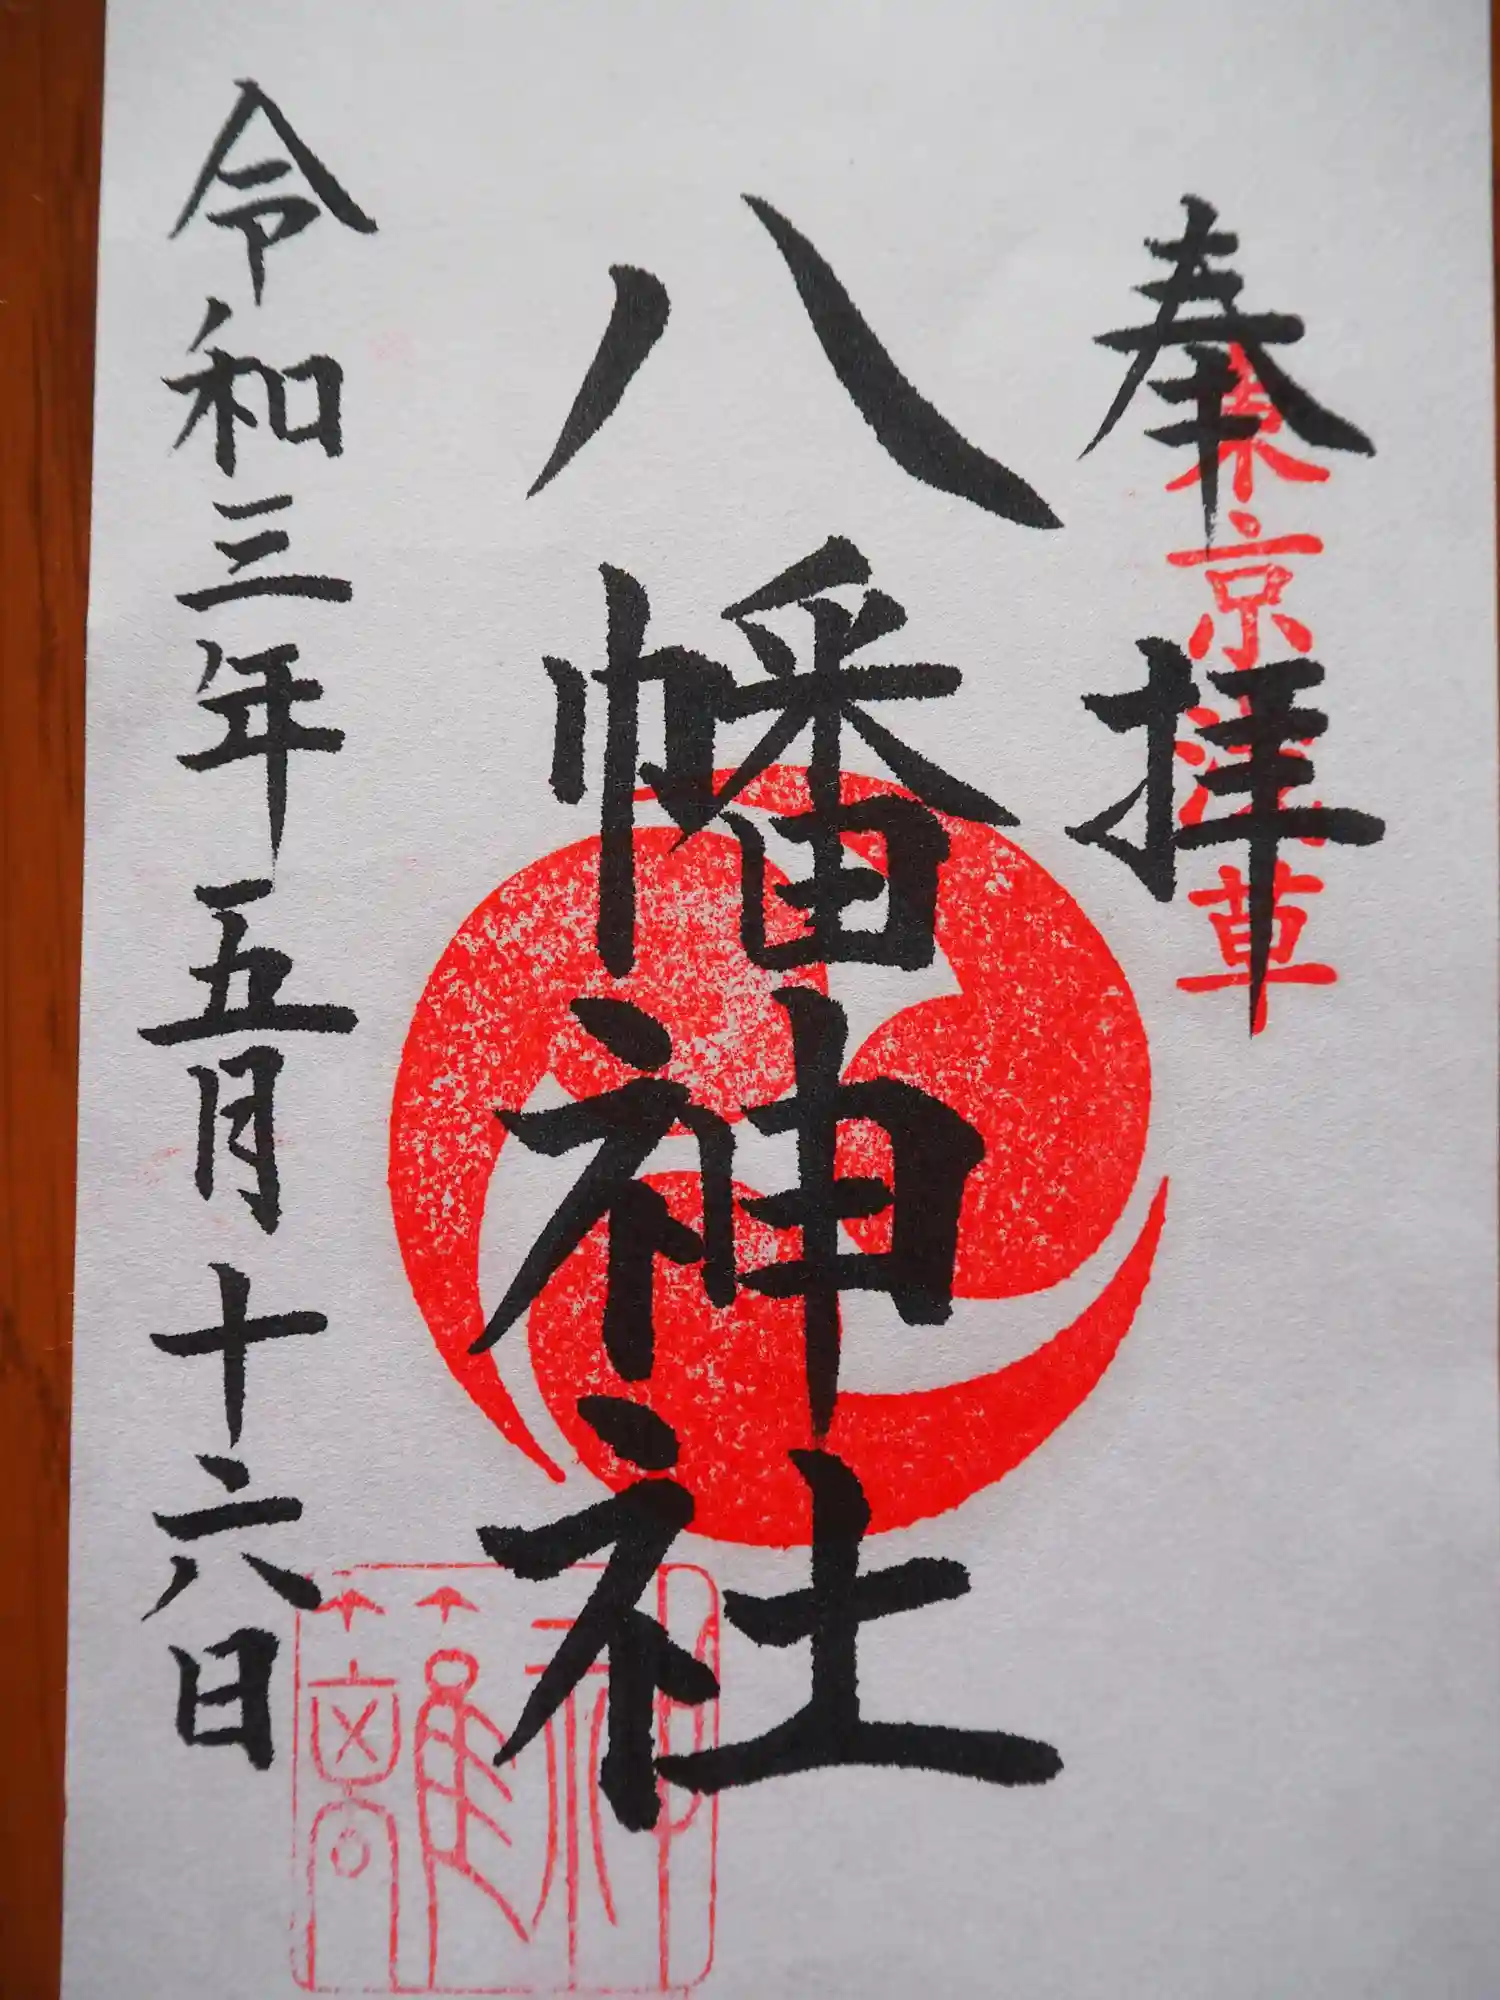 奉拝
東京浅草
八幡神社
令和三年五月十六日